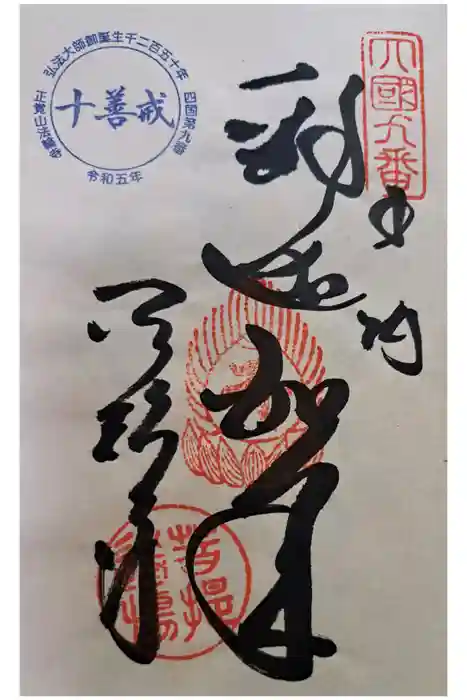 弘法大師御誕生千二百五十年
四国第九番
正覚山法輪寺
十善戒
令和五年
四國九番
奉納
釈迦如来
法輪寺
菩提
道場